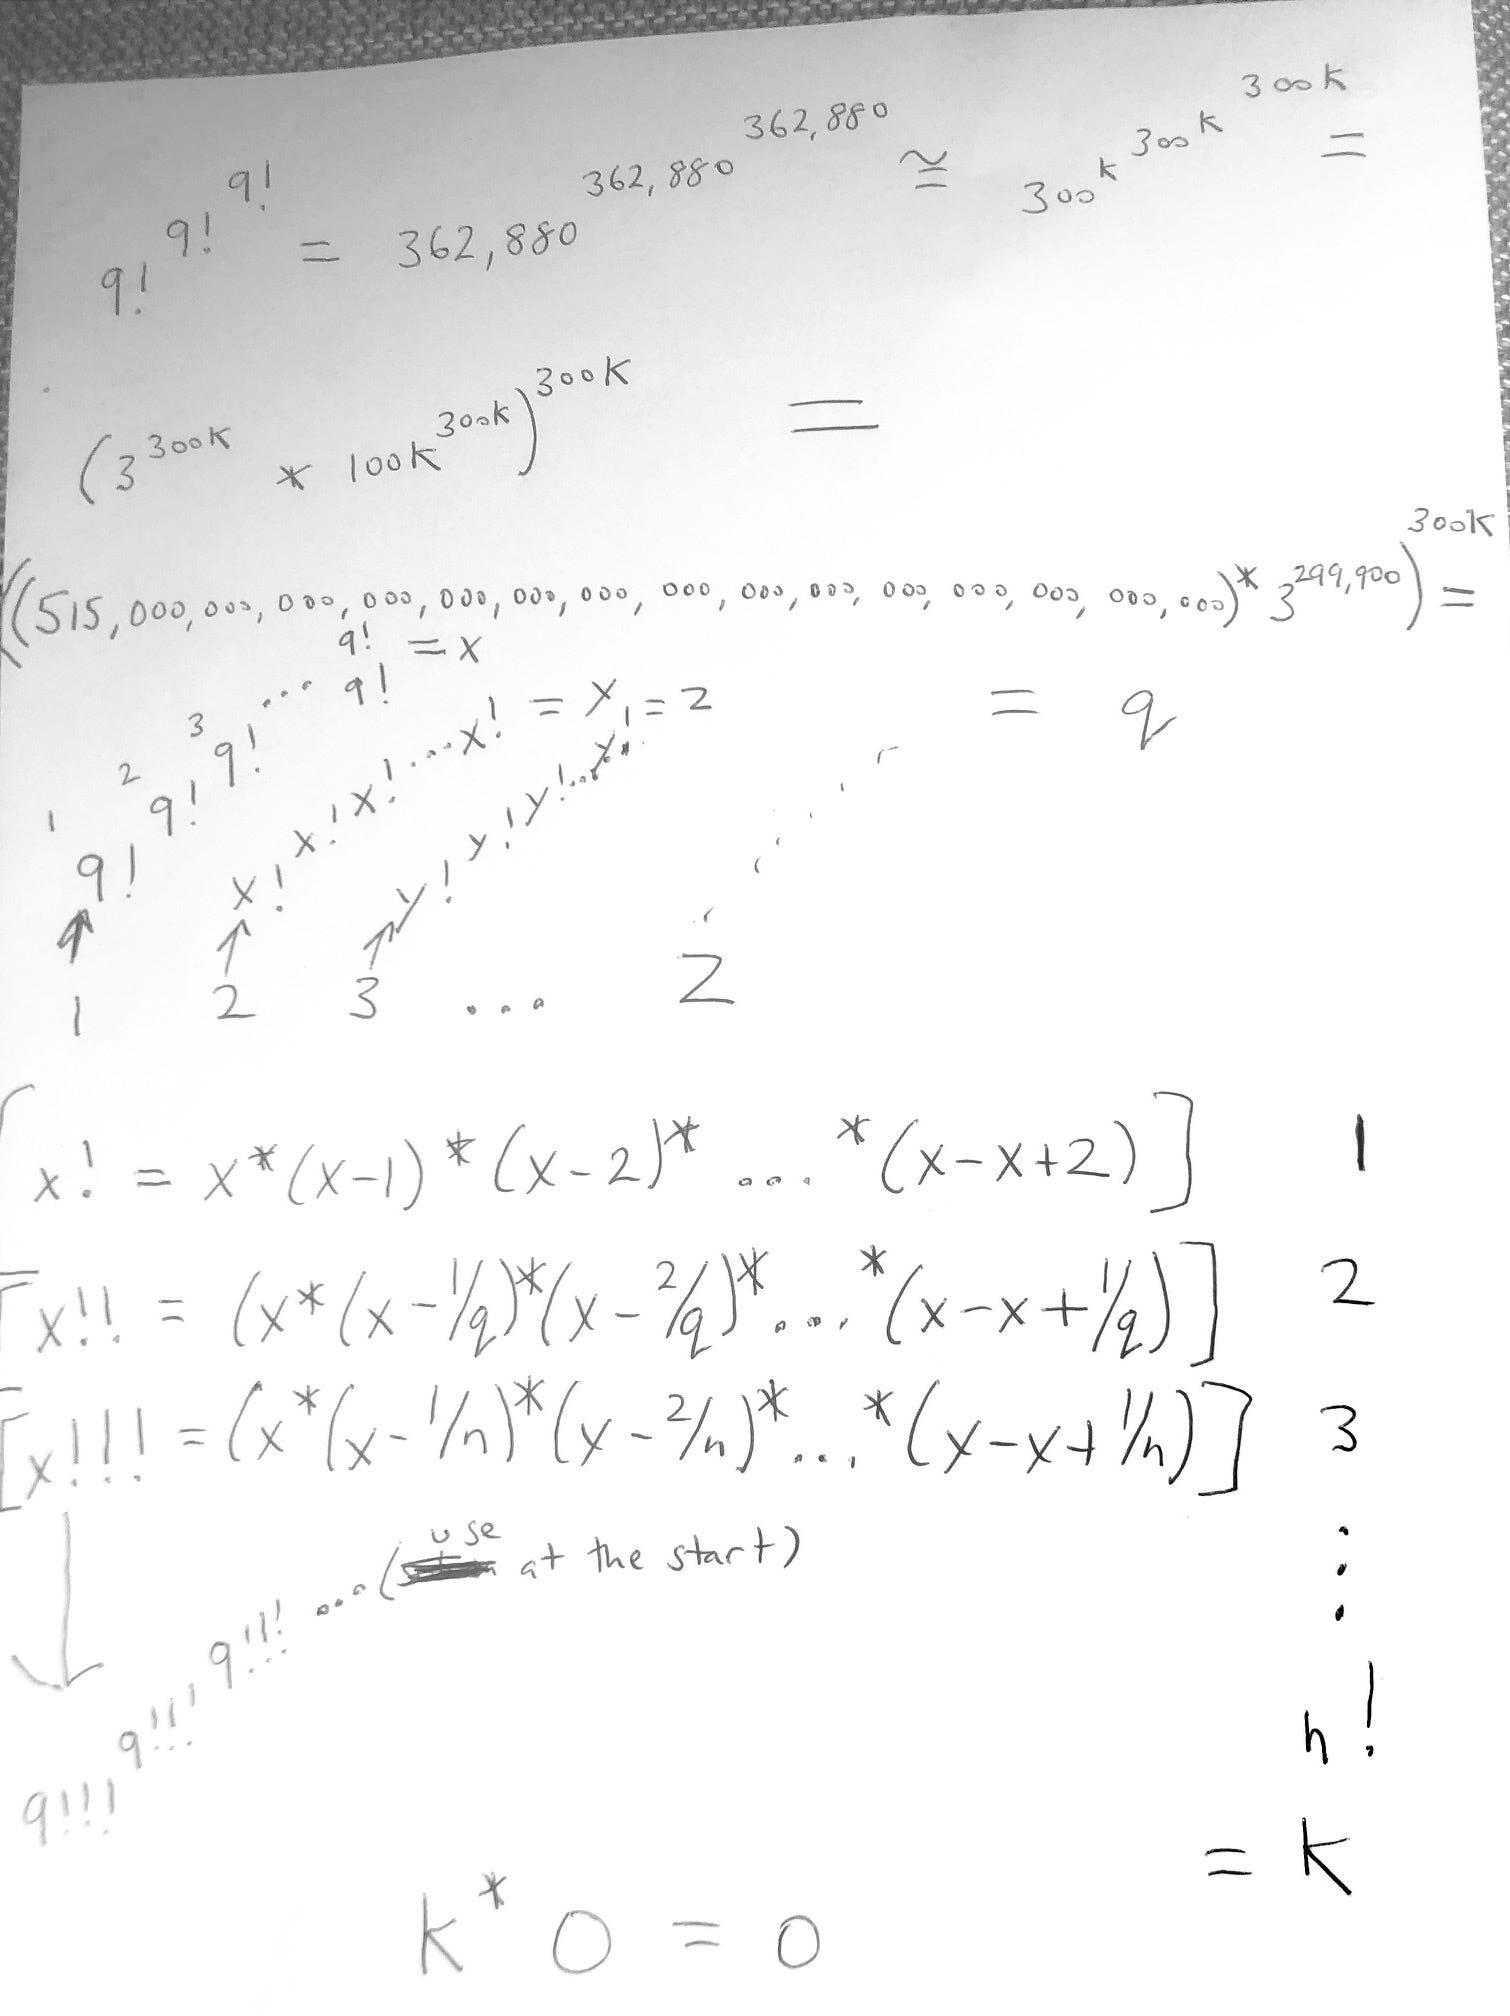 9!^9!^9! = 362,880^362,880^362,880 ≅ 300k^300k^300k =
(3^300k * 100k^300k)^300k =
((515,000,000,000,000,000,000,000,000,000,000,000,000,000,000,000)* 3^299,900)^300k =
1 9! 2 9! 3 9! ... 9! 9! = x
x! x! x! ... x! = y
y! y! y! ... y! = z
= q
1 2 3 ... z
[x! = x*(x-1)*(x-2)* ... *(x-x+2)] 1
[x!! = (x*(x-1/q)*(x-2/q)* ... *(x-x+1/q)] 2
[x!!! = (x*(x-1/n)*(x-2/n)* ... *(x-x+1/n)] 3
9!!!^9!!!^9!!! ... (use at the start)
⋮
n!
= k
k * 0 = 0